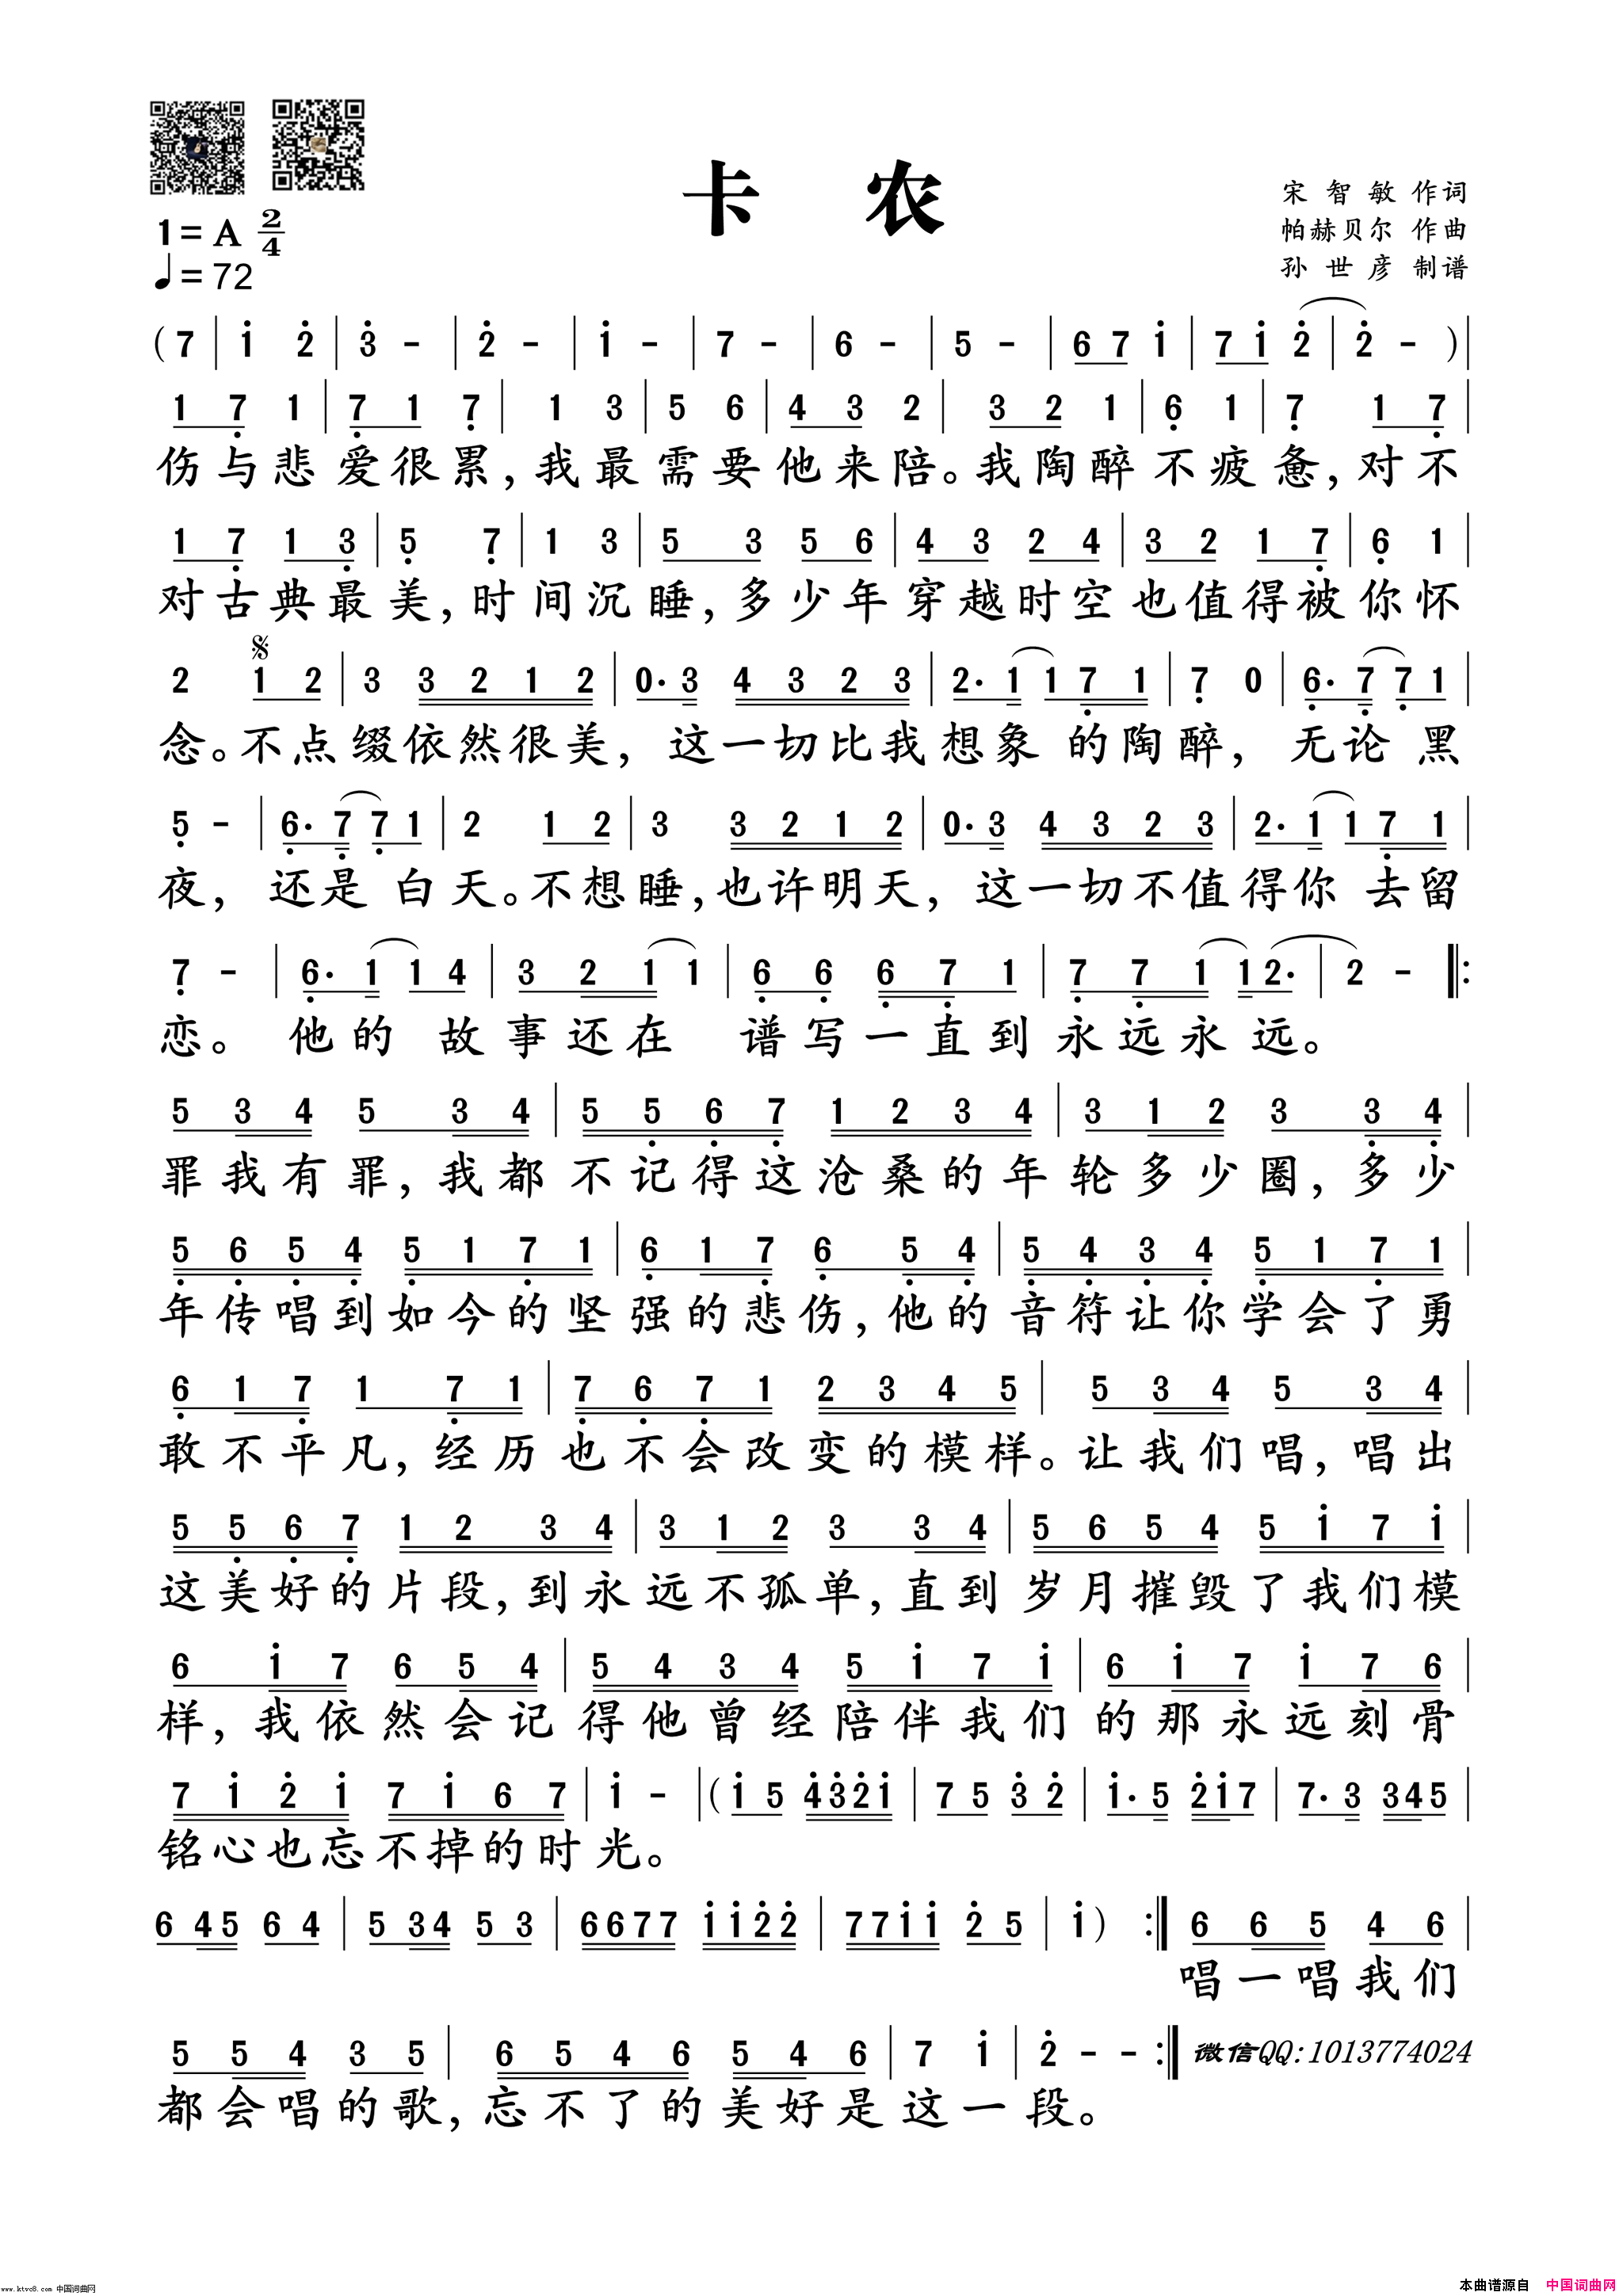 卡 农
宋 智 敏 作词
帕赫贝尔 作曲
孙 世 彦 制谱
1=A 2/4
♩=72
(7 | i 2 | 3 - | 2 - | i - | 7 - | 6 - | 5 - | 6 7 i | 7 i 2 | 2 - ) |
1 7 1 | 7 1 7 | 1 3 | 5 6 | 4 3 2 | 3 2 1 | 6 1 | 7 1 7 |
伤与悲爱很累,我最需要他来陪。我陶醉不疲惫,对不
1 7 1 3 | 5 7 | 1 3 | 5 3 5 6 | 4 3 2 4 | 3 2 1 7 | 6 1 |
对古典最美,时间沉睡,多少年穿越时空也值得被你怀
2 1 2 | 3 3 2 1 2 | 0· 3 4 3 2 3 | 2· 1 1 7 1 | 7 0 | 6· 7 7 1 |
念。不点缀依然很美,这一切比我想象的陶醉,无论黑
5 - | 6· 7 7 1 | 2 1 2 | 3 3 2 1 2 | 0· 3 4 3 2 3 | 2· 1 1 7 1 |
夜,还是白天。不想睡,也许明天,这一切不值得你去留
7 - | 6· 1 1 4 | 3 2 1 1 | 6 6 6 7 1 | 7 7 1 1 2· | 2 - |:
恋。他的故事还在谱写一直到永远永远。
5 3 4 5 3 4 | 5 5 6 7 1 2 3 4 | 3 1 2 3 3 4 |
罪我有罪,我都不记得这沧桑的年轮多少圈,多少
5 6 5 4 5 1 7 1 | 6 1 7 6 5 4 | 5 4 3 4 5 1 7 1 |
年传唱到如今的坚强的悲伤,他的音符让你学会了勇
6 1 7 1 7 1 | 7 6 7 1 2 3 4 5 | 5 3 4 5 3 4 |
敢不平凡,经历也不会改变的模样。让我们唱,唱出
5 5 6 7 1 2 3 4 | 3 1 2 3 3 4 | 5 6 5 4 5 i 7 i |
这美好的片段,到永远不孤单,直到岁月摧毁了我们模
6 i 7 6 5 4 | 5 4 3 4 5 i 7 i | 6 i 7 i 7 6 |
样,我依然会记得他曾经陪伴我们的那永远刻骨
7 i 2 i 7 i 6 7 | i - | (i 5 4 3 2 i | 7 5 3 2 | i· 5 2 i 7 | 7· 3 3 4 5 |
铭心也忘不掉的时光。
6 4 5 6 4 | 5 3 4 5 3 | 6 6 7 7 i i 2 2 | 7 7 i i 2 5 | i ) :| 6 6 5 4 6 |
唱一唱我们
5 5 4 3 5 | 6 5 4 6 5 4 6 | 7 i | 2 - - :| 微信QQ:1013774024
都会唱的歌,忘不了的美好是这一段。
www.ktvc8.com 中国词曲网
本曲谱源自 中国词曲网